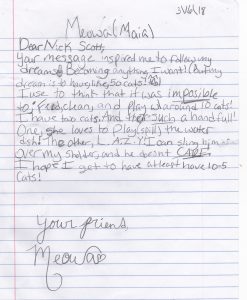 3/6/18
Meowa (Maia)
Dear Nick Scott,
Your message inspired me to follow my
dreams. Becoming anything I want! (But my
dream is to have like 50 cats!)
I use to think that it was imposible
to, Feed, clean, and play w/ around 10 cats!
I have two cats. And such a handful!
One, she loves to Play, spills the water
dish. The other, L.A.Z.Y! I can sling him
over my sholder, and he doesnt CARE!
I hope I get to have atleast have 10-5
cats!
Your friend,
Meowa